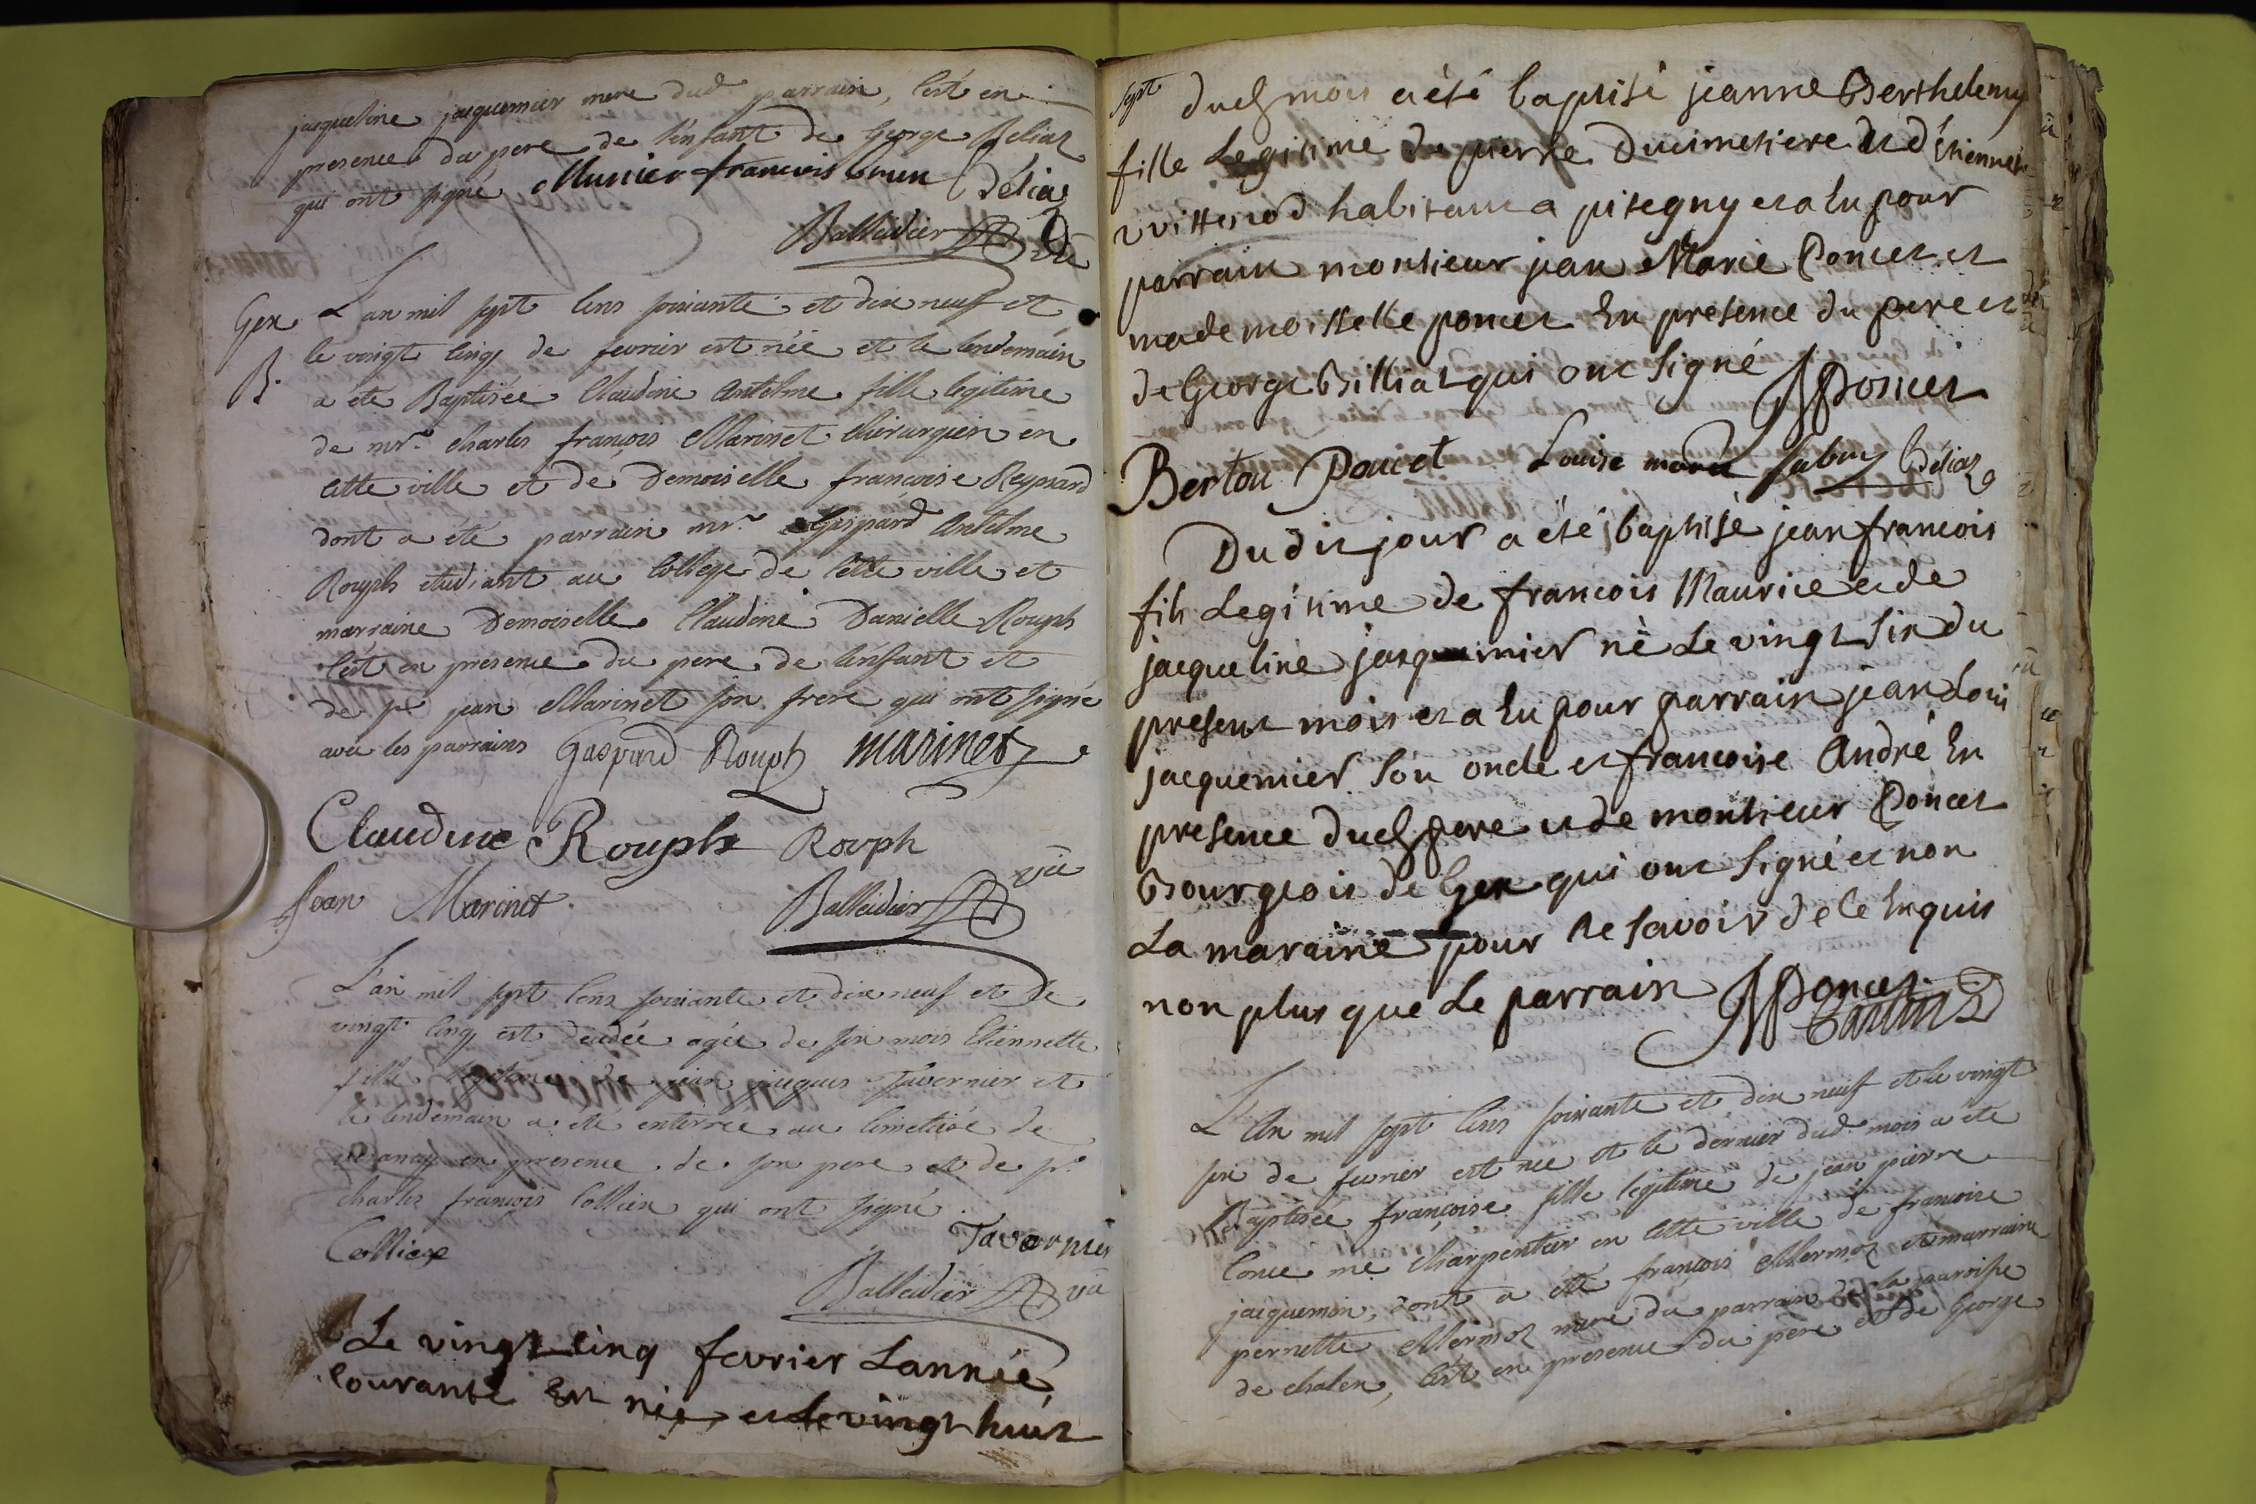 jacqueline jacquemier mere dud parrain, C'est en
presence du pere de l'enfant de George Beliaz
qui ont signé Munier francois emen Béliaz
Balleidier vû
Gex
B.
L'an mil sept Cens soixante et dix neuf et
le vingt Cinq de fevrier est née et le lendemain
a été Baptisée Claudine Antelme fille legitime
de mr. charles françois Marinet chirurgien en
Cette ville et de Demoiselle francoise Reynard
dont a été parrain mr. Gaspard Antelme
Rouph etudiant au College de Cette ville et
marraine Demoiselle Claudine Danielle Rouph
C'est en presence du pere de l'enfant et
de jean Marinet son frere qui ont signé
avec les parrains Gaspard Rouph marinet
Claudine Rouph Rouph
Jean Marinet Balleidier vû
L'an mil sept Cens soixante et dix neuf et le
vingt Cinq est decedée agée de six mois Etiennette
fille de jean jacques Tavernier et
le lendemain a été enterrée au Cimetiere de
en presence de son pere et de
charles francois Colliex qui ont signé
Colliex Tavernier
Balleidier vû
Le vingt cinq fevrier Lannée
Courante Est née et Le vingt huit
sept
dud mois a été baptisé jeanne Berthelemy
fille Legitime de pierre Ducimetiere et d'Etiennette
vuittenod habitans a pitegny et a Eu pour
parrain monsieur jean Marie Poncet et
mademoiselle poncet En presence du pere et
de George Billiaz qui ont Signé Poncet
Berton Poncet Louise Béliaz
Dudit jour a été baptisé jean francois
fils Legitime de francois Maurice et de
jacqueline jacquemier né Le vingt Six du
present mois et a Eu pour parrain jean Loui
jacquemier Son oncle et francoise André En
presence dud pere et de monsieur Poncet
Bourgeois de Gex qui ont Signé et non
La maraine pour ne Savoir de ce Enquis
non plus que Le parrain Poncet
L'An mil sept Cens soixante et dix neuf et le vingt
six de fevrier est née et le dernier dud mois a été
Baptisée françoise fille legitime de jean pierre
Conce me Charpentier en Cette ville de francoise
jacquemin, dont a été françois Mermoz et marraine
pernette Mermoz mere du parrain de la paroisse
de chalex, C'est en presence du pere et de George